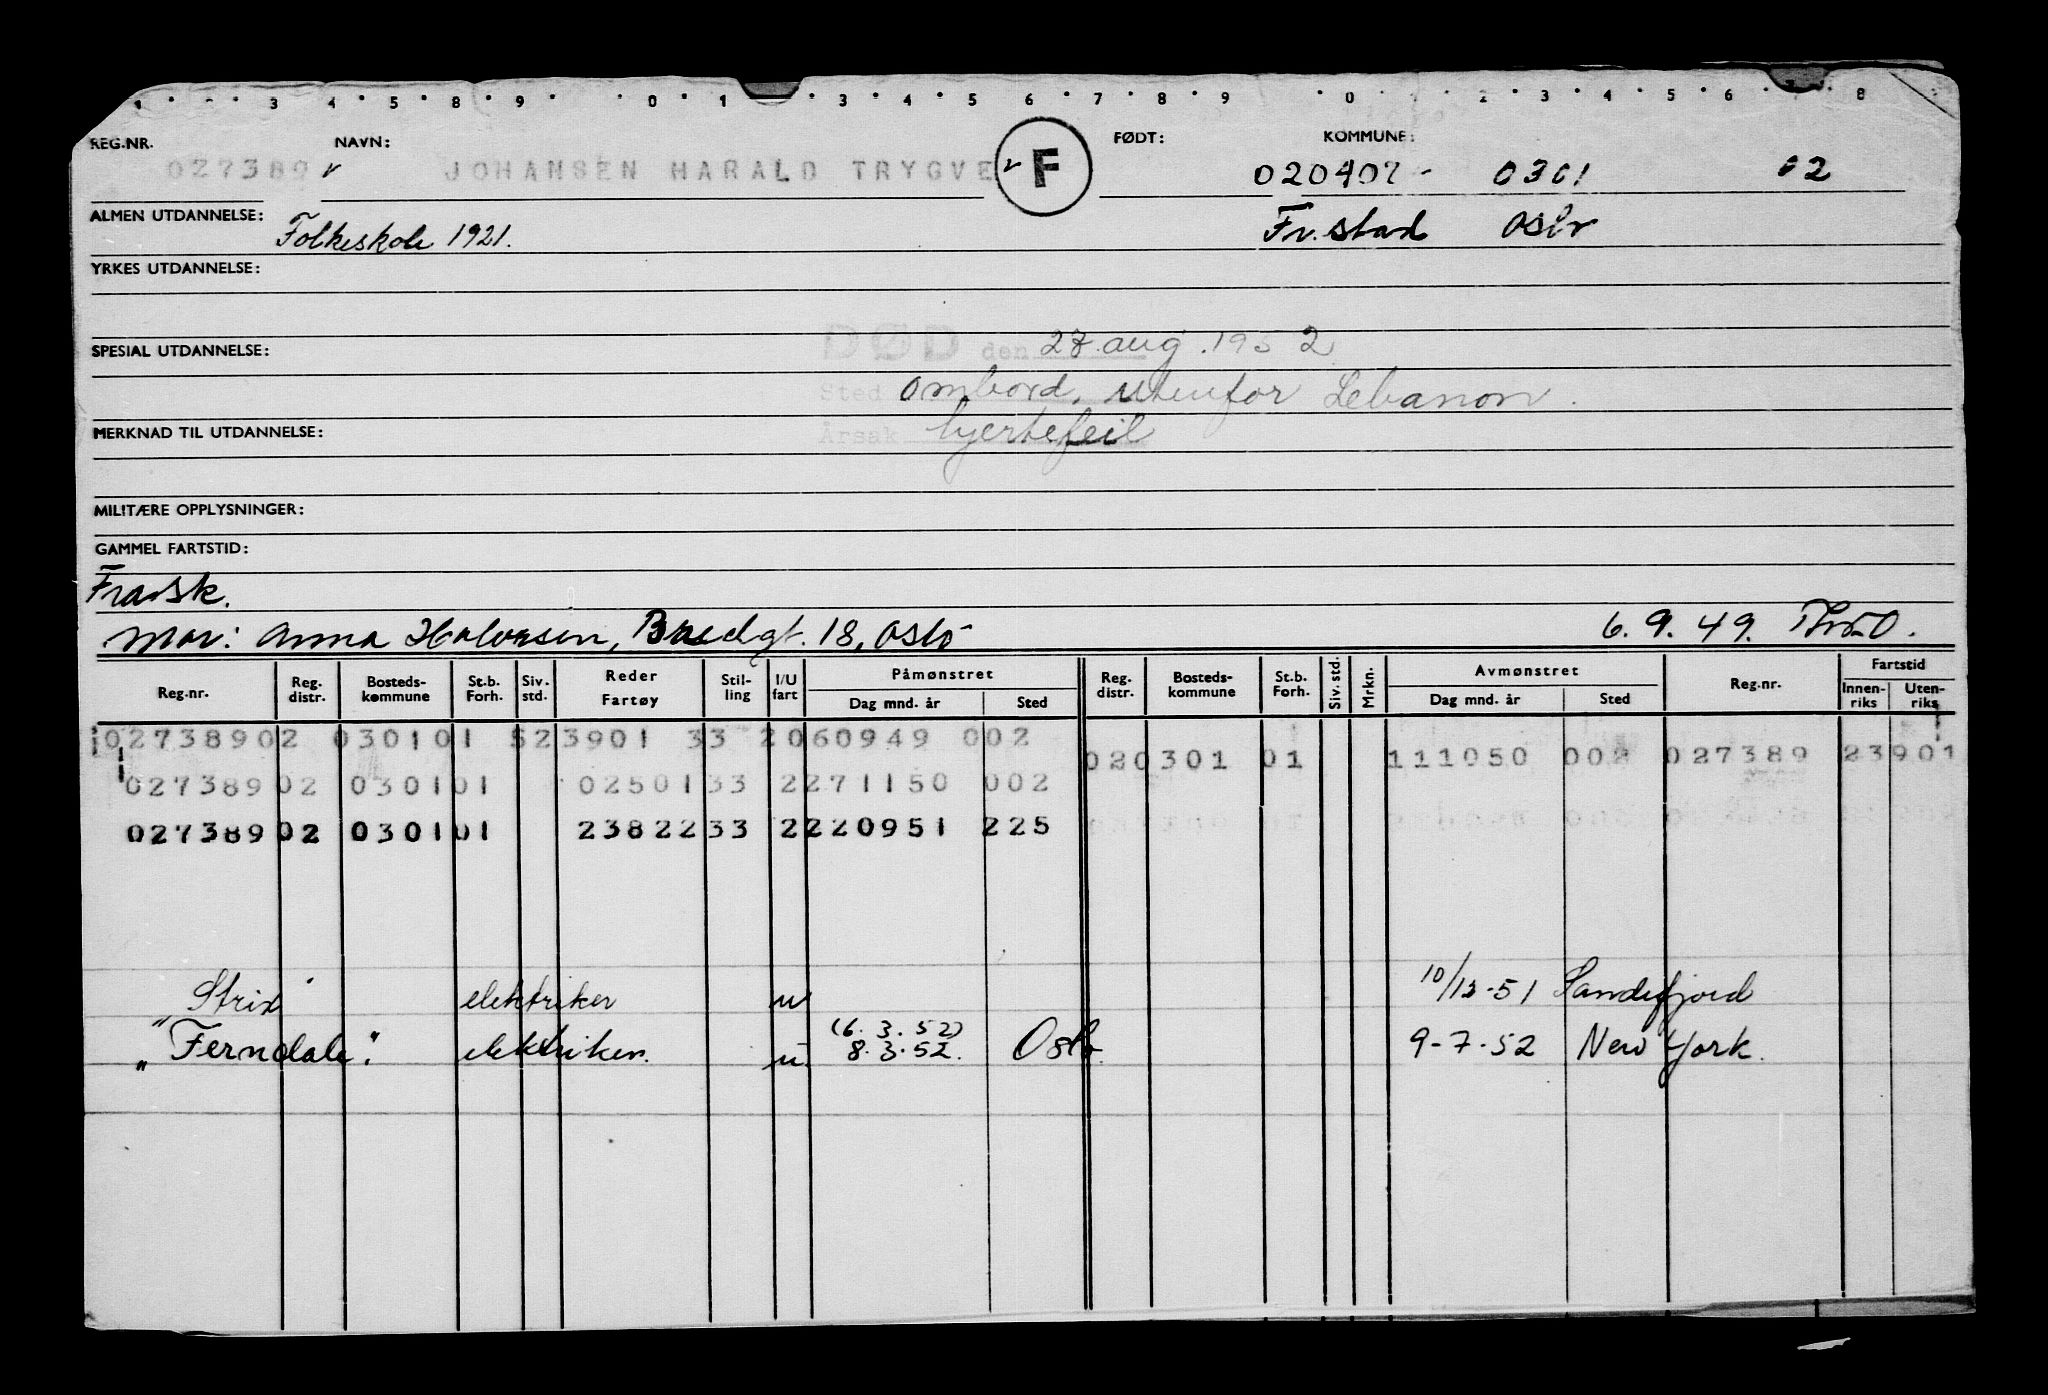 REG.NR. NAVN: F FØDT: KOMMUNE:
027389 JOHANSEN HARALD TRYGVE 020407 0301 02
ALMEN UTDANNELSE: Folkeskole 1921. Fr.stad Oslo
YRKES UTDANNELSE:
SPESIAL UTDANNELSE: DØD den 27 aug. 1952
Sted ombord, utenfor Lebanon.
MERKNAD TIL UTDANNELSE: Årsak hjertefeil
MILITÆRE OPPLYSNINGER:
GAMMEL FARTSTID:
Fraisk.
Mor: Anna Halvorsen, Bredgt. 18, Oslo 6.9.49.
Reg.nr. Reg. distr. Bosteds-kommune St.b. Forh. Siv. std. Reder Fartøy Stil-ling I/U fart Påmønstret Dag mnd. år Sted Reg. distr. Bosteds-kommune St.b. Forh. Siv. std. Mrkn. Avmønstret Dag mnd. år Sted Reg.nr. Fartstid Innen-riks Uten-riks
02738902 030101 523901 33 2060949 002 020301 01 111050 002 027389 23901
02738902 030101 0250133 2271150 002
02738902 030101 2382233 2220951 225
"Strix" elektriker u 10/12-51 Sandefjord
(6.3.52)
"Ferndale". elektriker. u. 8.3.52. Oslo. 9-7-52 New York.